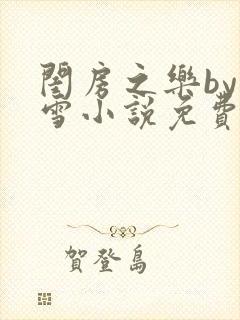 閨房之樂by
雪小說免費
賀登島